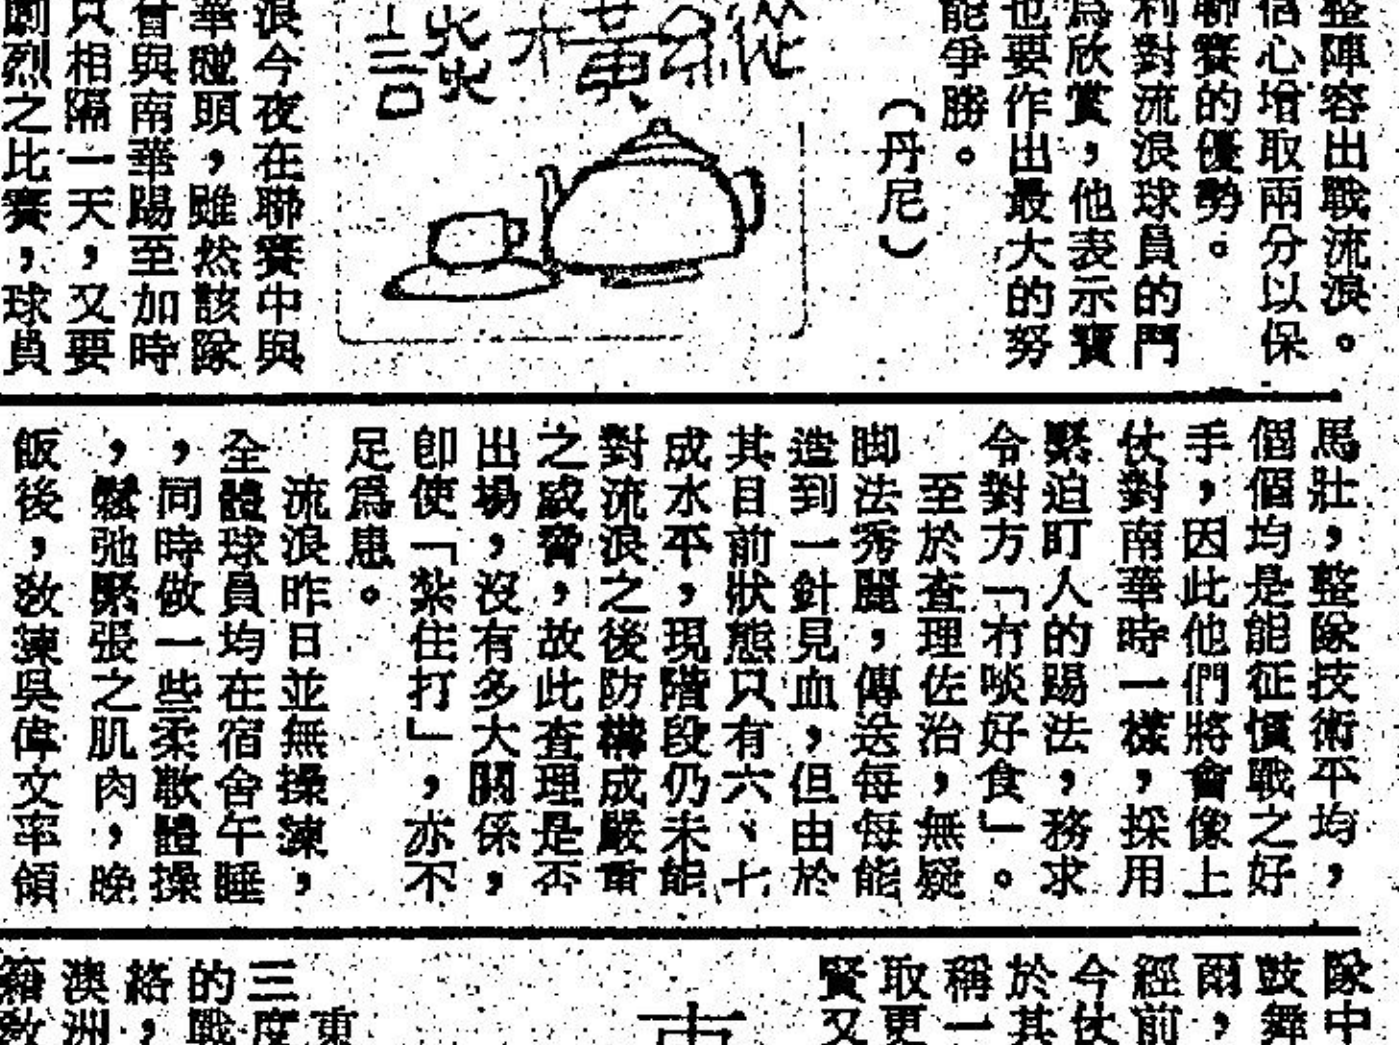 整陣容出戰流浪。
信心增取兩分以保
聯賽的優勢。
利對流浪球員的鬥
為欣賞，他表示寶
也要作出最大的努
能爭勝。
（丹尼）
縱橫談
浪今夜在聯賽中與
華碰頭，雖然該隊
會與南華踢至加時
只相隔一天，又要
劇烈之比賽，球員
馬壯，整隊技術平均，
個個均是能征慣戰之好
手，因此他們將會像上
仗對南華時一樣，採用
緊迫盯人的踢法，務求
令對方「冇啖好食」。
至於查理佐治，無疑
脚法秀麗，傳送每每能
造到一針見血，但由於
其目前狀態只有六、七
成水平，現階段仍未能
對流浪之後防構成嚴重
之威脅，故此查理是否
出場，沒有多大關係，
即使「紮住打」，亦不
足爲患。
流浪昨日並無操練，
全體球員均在宿舍午睡
，同時做一些柔軟體操
，鬆弛緊張之肌肉，晚
飯後，教練吳偉文率領
隊中
鼓舞
爾，
經前
今仗
於其
稱一
取更
賢又
東
三度
的戰
絡，
澳洲
籍教